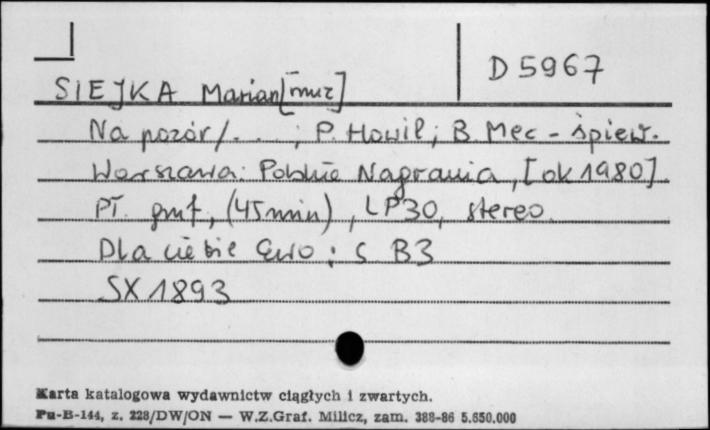 D 5967
SIEJKA Marian [muz]
Na pozór /. . . . ; P. Howil ; B. Mec - śpiew.
Warszawa : Polskie Nagrania, [ok 1980]
Pł. gmf., (45 min), LP30, stereo.
Dla ciebie Ewo : S B3
SX 1893
Karta katalogowa wydawnictw ciągłych i zwartych.
Pu-B-144, z. 228/DW/ON — W.Z.Graf. Milicz, zam. 388-86 5.650.000